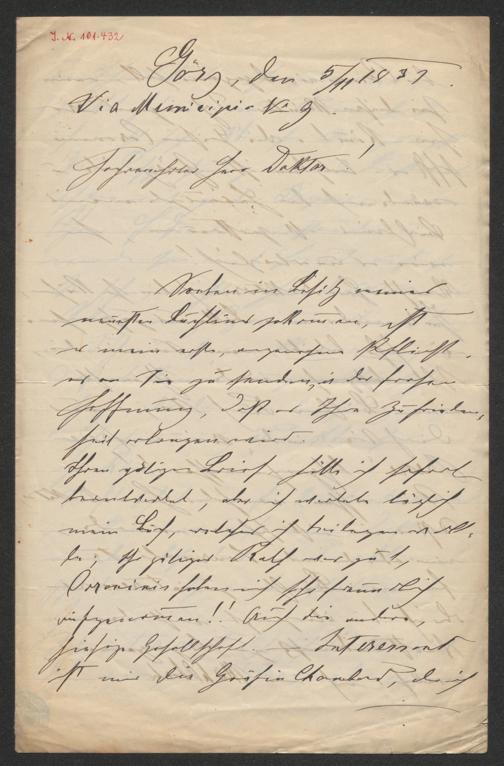 J. N. 101.432
Görz, den 5/II 1881.
Via Municipio No 9.
Hochverehrter Herr Doktor!
Soeben in Besitz meines
neuesten Büchleins gekommen, ist
es meine erste, angenehme Pflicht,
es an Sie zu senden, in der frohen
Hoffnung, daß es Ihre Zufrieden-
heit erlangen wird.
Ihren gütigen Brief hätte ich sofort
beantwortet, aber ich wartete täglich
mein Buch, welches ich beilegen woll-
te; Ihr gütiger Rath war gut,
haben mich sehr freundlich
aufgenommen!! Auch die andere,
hiesige Gesellschaft. Interessant
ist mir die Gräfin Chambord, die ich